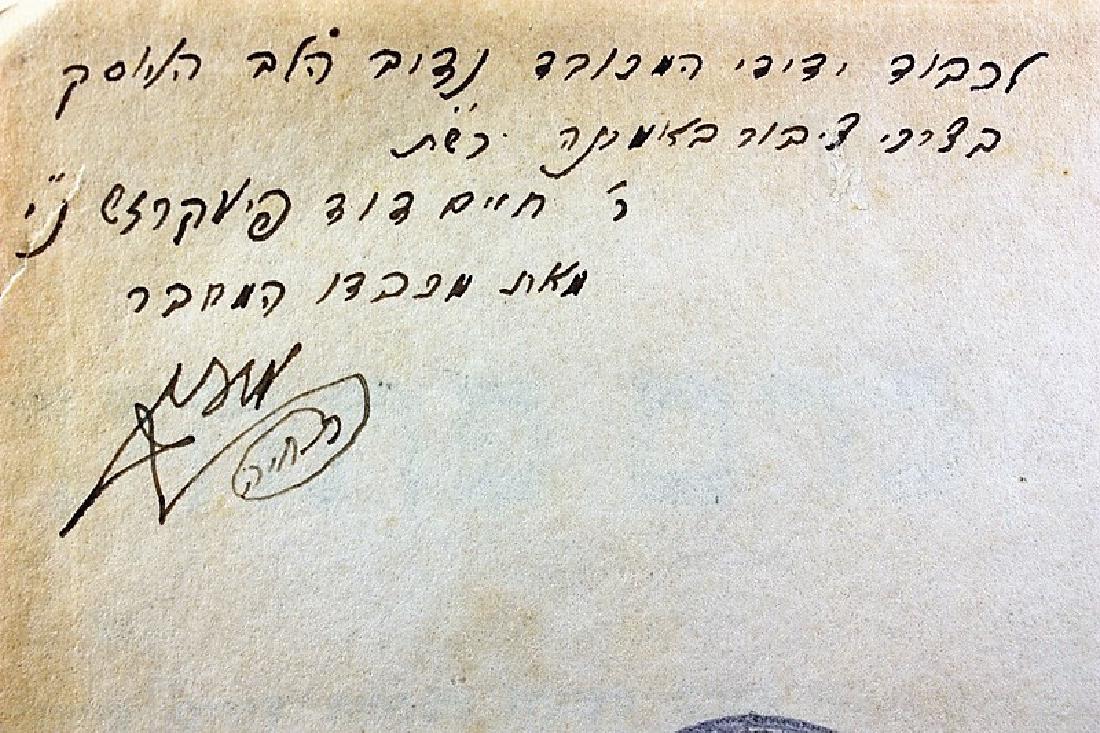 לכבוד ידידי המכובד נדיב הלב העוסק
בצרכי ציבור באמונה כש"ת
ר' חיים דוד פיעקרזש נ"י
מאת מכבדו המחבר